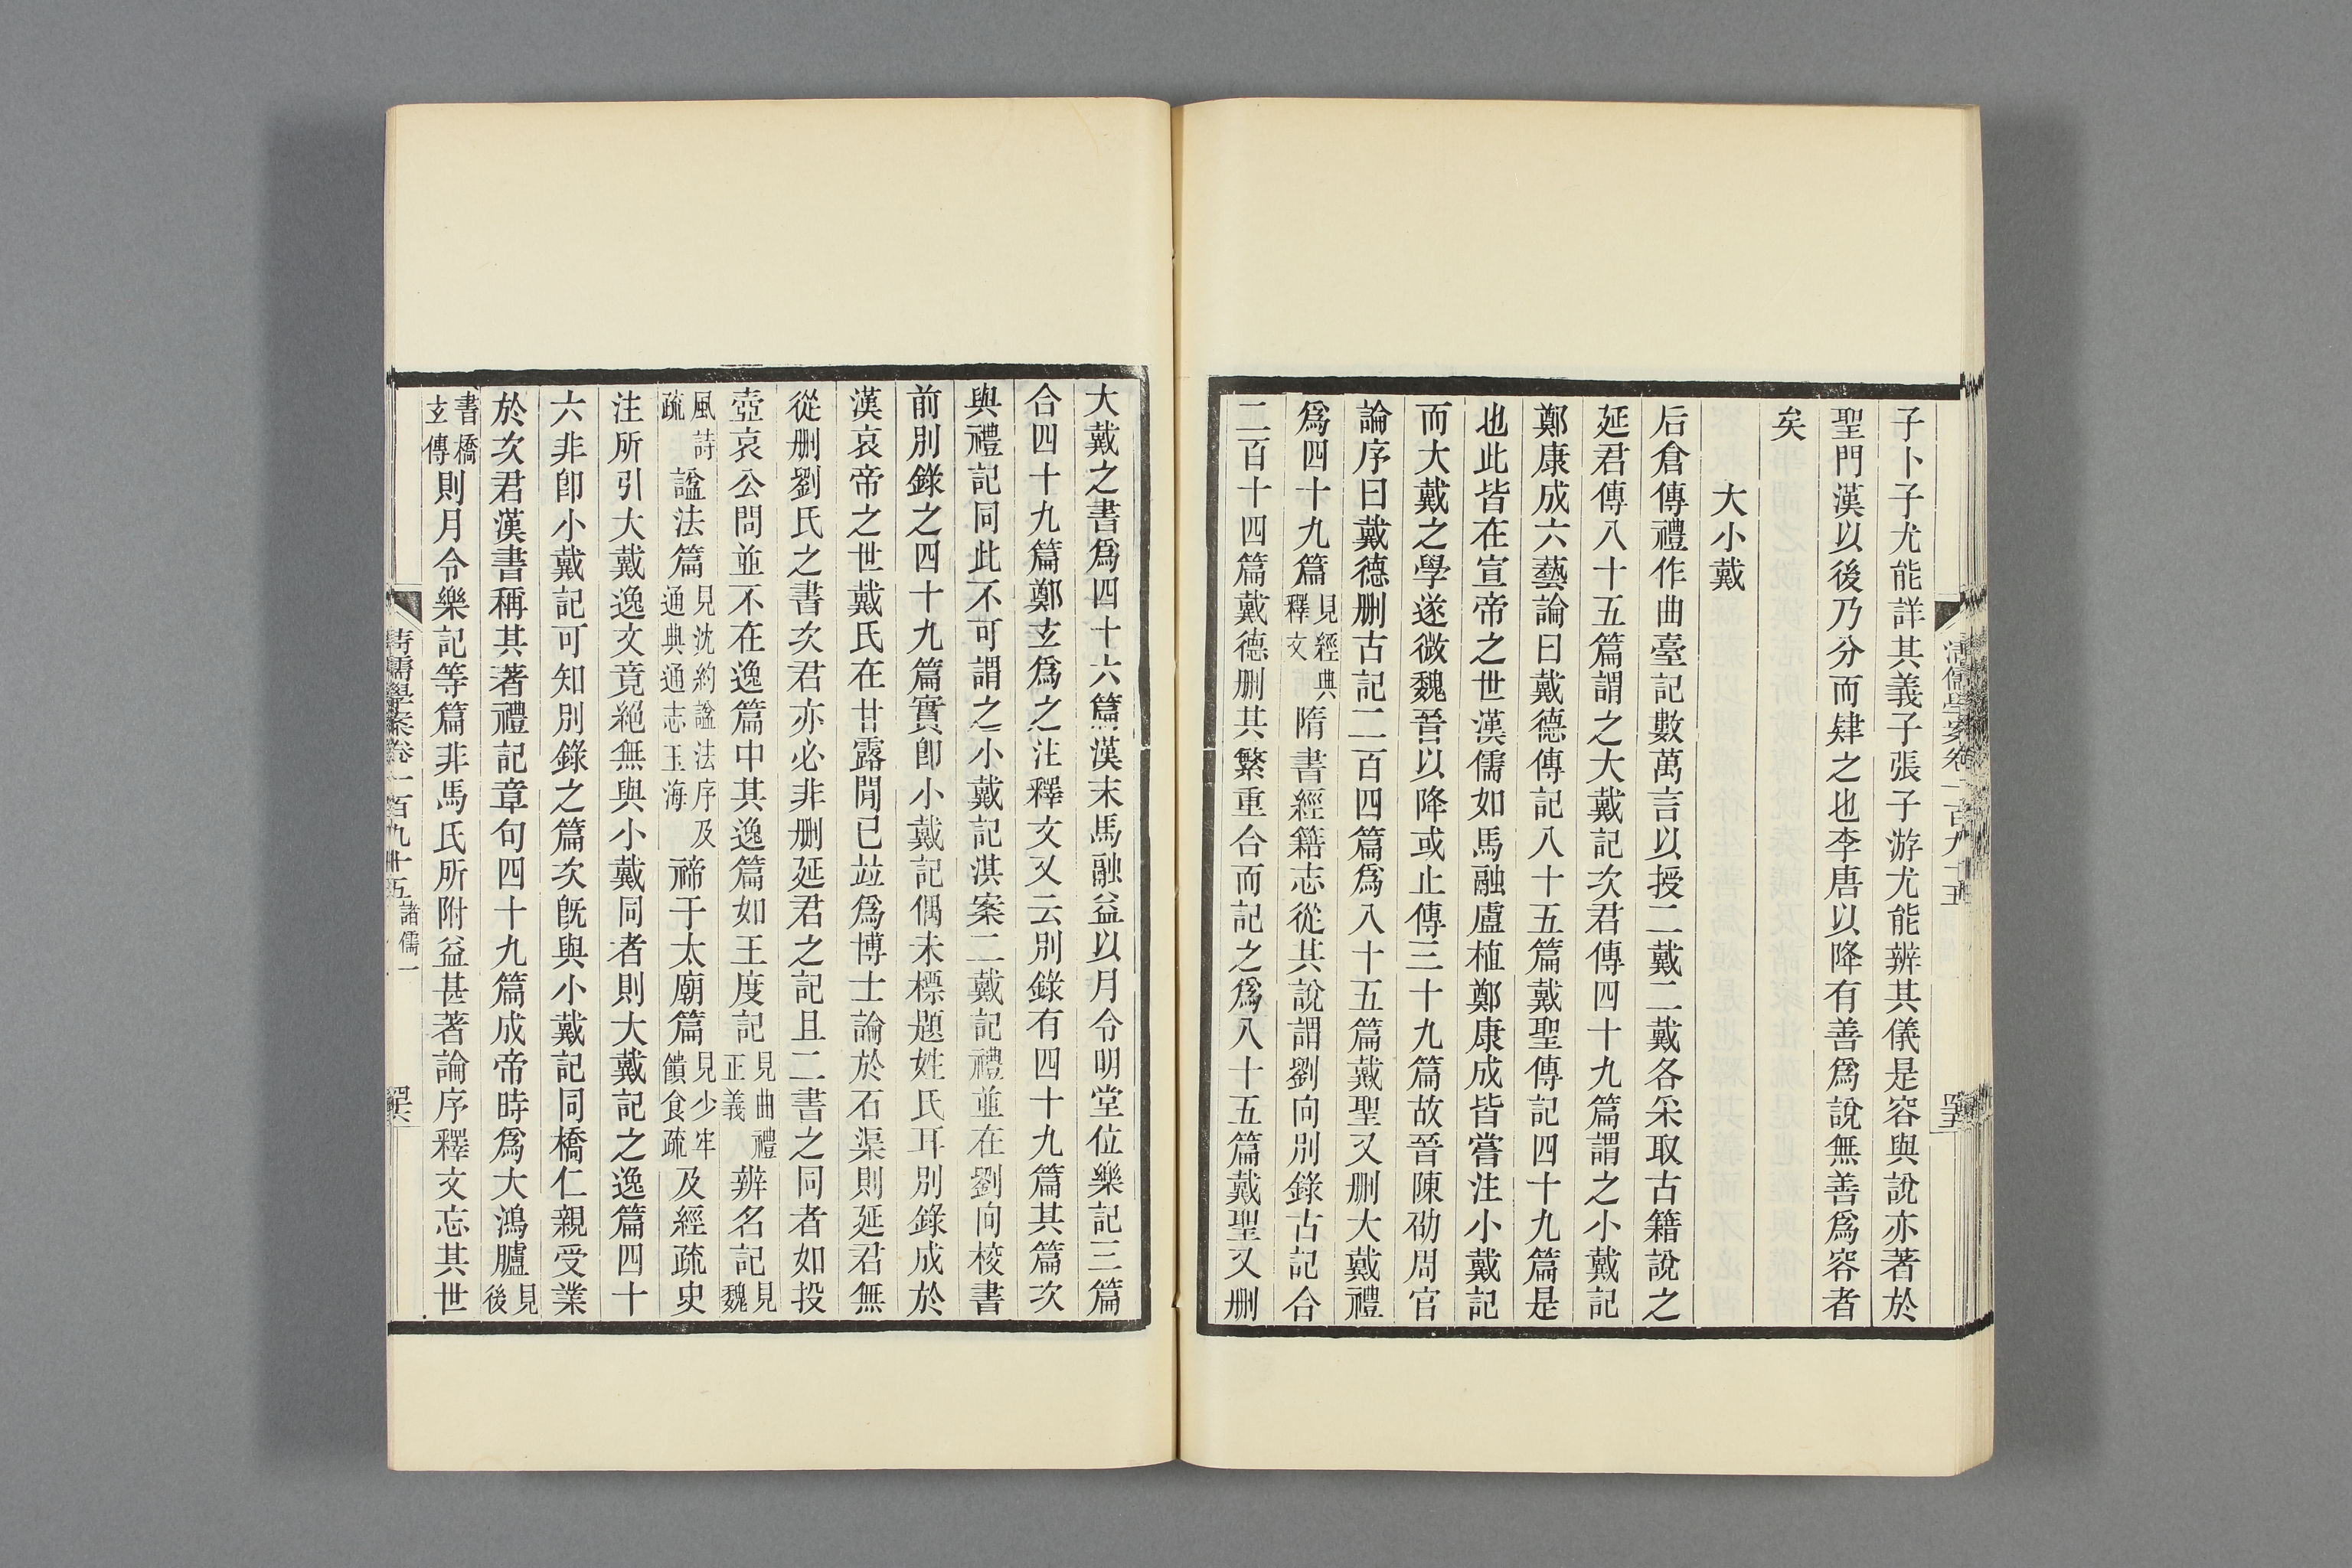 子卜子尤能詳其義子張子游尤能辨其儀是容與說亦著於
聖門漢以後乃分而肄之也李唐以降有善爲說無善爲容者
矣
大小戴
后倉傳禮作曲臺記數萬言以授二戴二戴各采取古籍說之
延君傳八十五篇謂之大戴記次君傳四十九篇謂之小戴記
鄭康成六藝論曰戴德傳記八十五篇戴聖傳記四十九篇是
也此皆在宣帝之世漢儒如馬融盧植鄭康成皆嘗注小戴記
而大戴之學遂微魏晉以降或止傳三十九篇故晉陳劭周官
論序曰戴德刪古記二百四篇爲八十五篇戴聖又刪大戴禮
爲四十九篇見經典釋文隋書經籍志從其說謂劉向別錄古記合
二百十四篇戴德刪其繁重合而記之爲八十五篇戴聖又刪
大戴之書爲四十六篇漢末馬融益以月令明堂位樂記三篇
合四十九篇鄭玄爲之注釋文又云別錄有四十九篇其篇次
與禮記同此不可謂之小戴記淇案二戴記禮並在劉向校書
前別錄之四十九篇實卽小戴記偶未標題姓氏耳別錄成於
漢哀帝之世戴氏在甘露閒已竝爲博士論於石渠則延君無
從刪劉氏之書次君亦必非刪延君之記且二書之同者如投
壺哀公問並不在逸篇中其逸篇如王度記見曲禮正義辨名記見魏
風詩疏諡法篇見沈約諡法序及通典通志玉海禘于太廟篇見少牢饋食疏及經疏史
注所引大戴逸文竟絕無與小戴同者則大戴記之逸篇四十
六非卽小戴記可知別錄之篇次旣與小戴記同橋仁親受業
於次君漢書稱其著禮記章句四十九篇成帝時爲大鴻臚見後
書橋玄傳則月令樂記等篇非馬氏所附益甚著論序釋文忘其世
清儒學案卷一百九十五
諸儒一